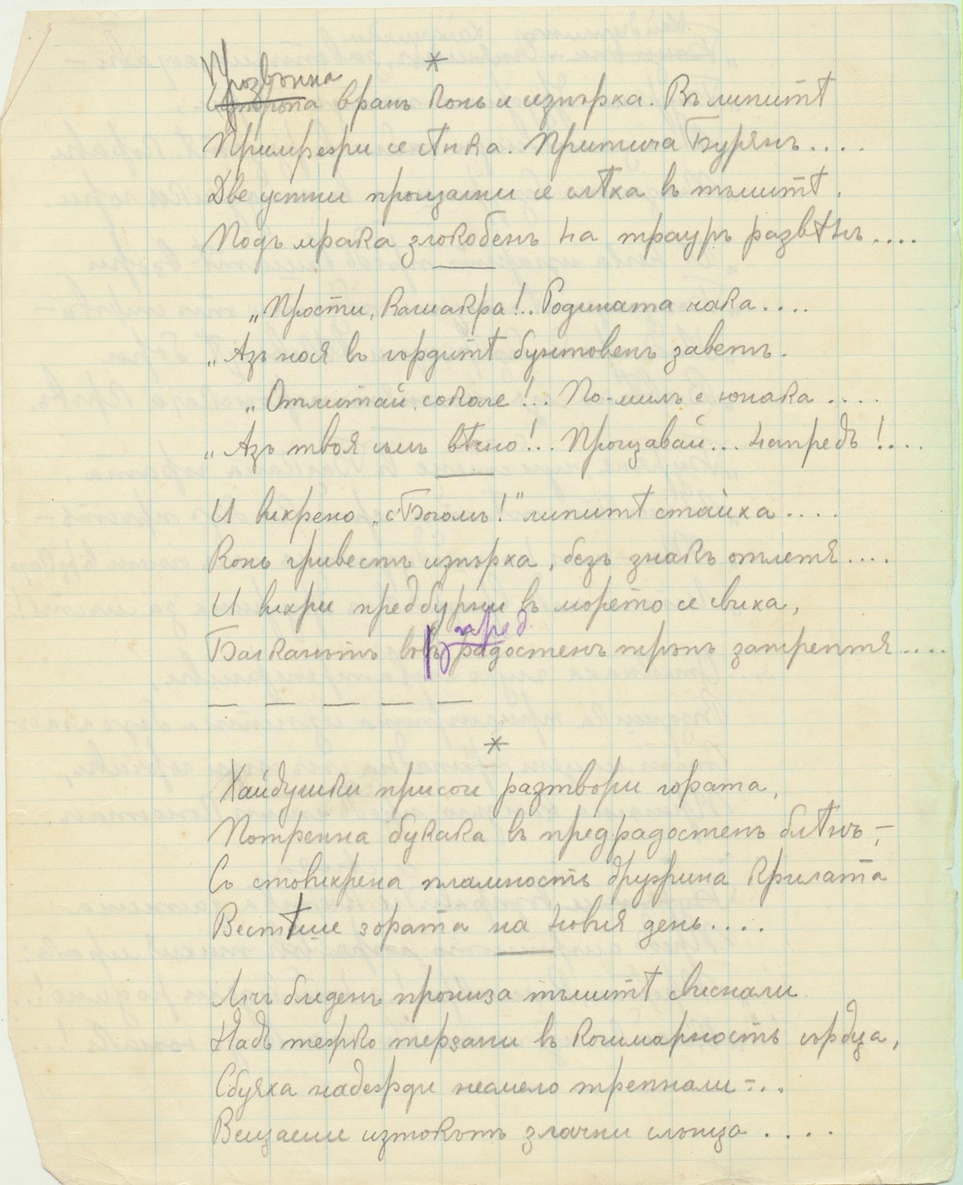 *
Прозвънна вранъ конь и изпърка. Въ липитѣ
Примрежи се сѣнка. Притича Бурянъ....
Две устни прощални се слѣха въ тъмитѣ.
Подъ мрака злокобенъ на трауръ развѣнъ....
„Прости, Калиакра!.. Родината чака....
„Азъ нося въ гърдитѣ бунтовенъ заветъ.
„Отлитай, соколе!... По-милъ е юнака....
„Азъ твоя съмъ вѣчно!.. Прощавай... Напредъ!...
И викрено „съ Богомъ!“ липитѣ стаиха....
Конь гривестъ изпърка, безъ знакъ отлетя....
И вихри предбурни въ морето се свиха,
Балканътъ въ предрадостенъ трѫпъ затрептя....
— — — — —
*
Хайдушки присои разтвори гората,
Потрепна букака въ предрадостенъ блѣнъ,—
Съ стовихрена пламность дружина крилата
Вестѣше зората на новия день....
Лъчъ блиденъ прониза тъмитѣ свиснали
Надъ тежко терзани въ кошмарность сърдца,
Сбуяха надежди несмело трепнали—..
Вещаеше изтокътъ злачни слънца....